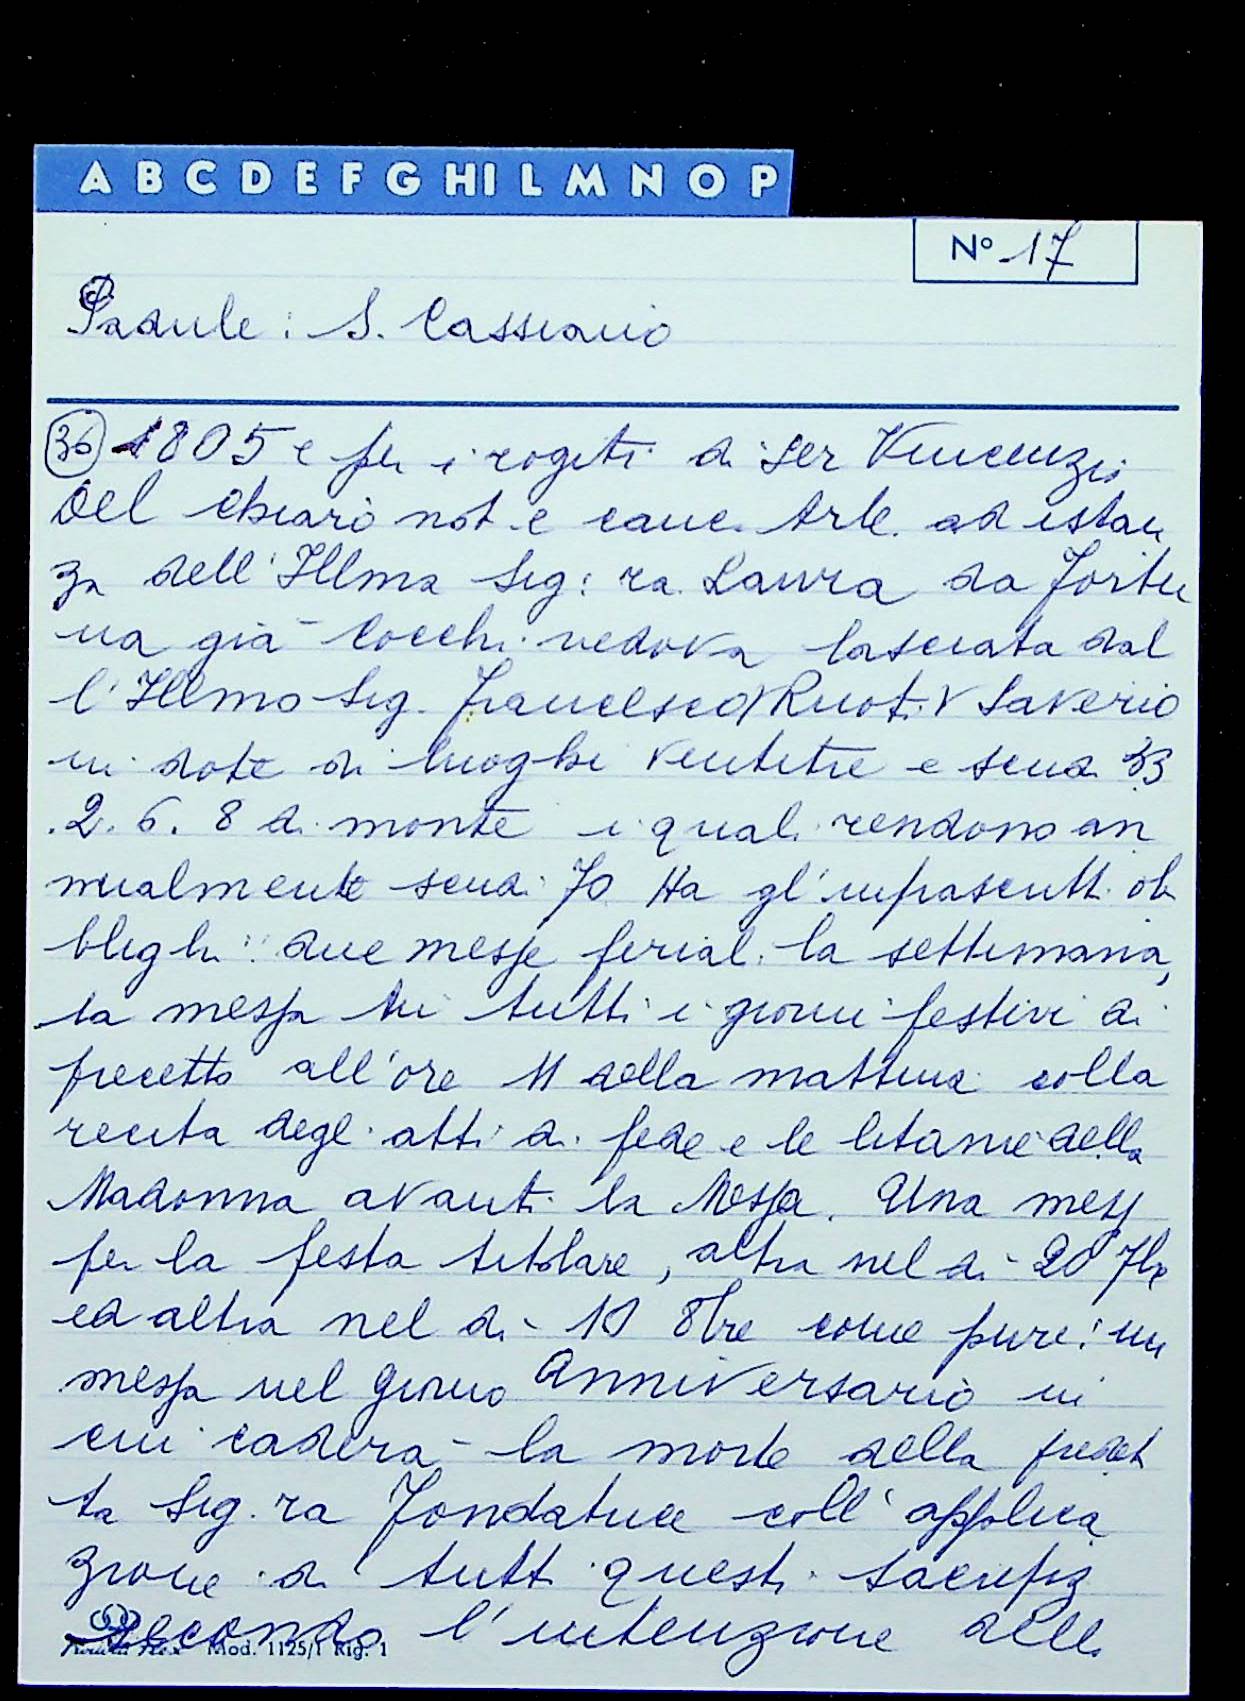 A B C D E F G HI L M N O P
Nº 17
Padule: S. Cassiano
36 1805 e per i rogiti di Ser Vincenzio
Del Chiaro not. e canc. Arb. ad istan
za dell'Illma Sig:ra Laura da Fortu
na già Cocchi vedova lasciata dal
l'Illmo Sig. Francesco Ruoti Saverio
in dote di luoghi ventitre e scudi 33
.2.6.8 di monte i quali rendono an
nualmente scudi 70 Ha gl'infrascritti ob
blighi: due messe feriali la settimana,
la messa in tutti i giorni festivi di
precetto all'ore 11 della mattina colla
recita degli atti di fede e le litanie della
Madonna avanti la Messa. Una mess
per la festa titolare, altra nel di 20 7bre
ed altra nel di 10 8bre come pure: un
messa nel giorno Anniversario in
cui caderà la morte della predet
ta Sig.ra Fondatrice coll'applica
zione di tutti questi sacrifiz
secondo l'intenzione dell
Mod. 1125/1 Rig. 1